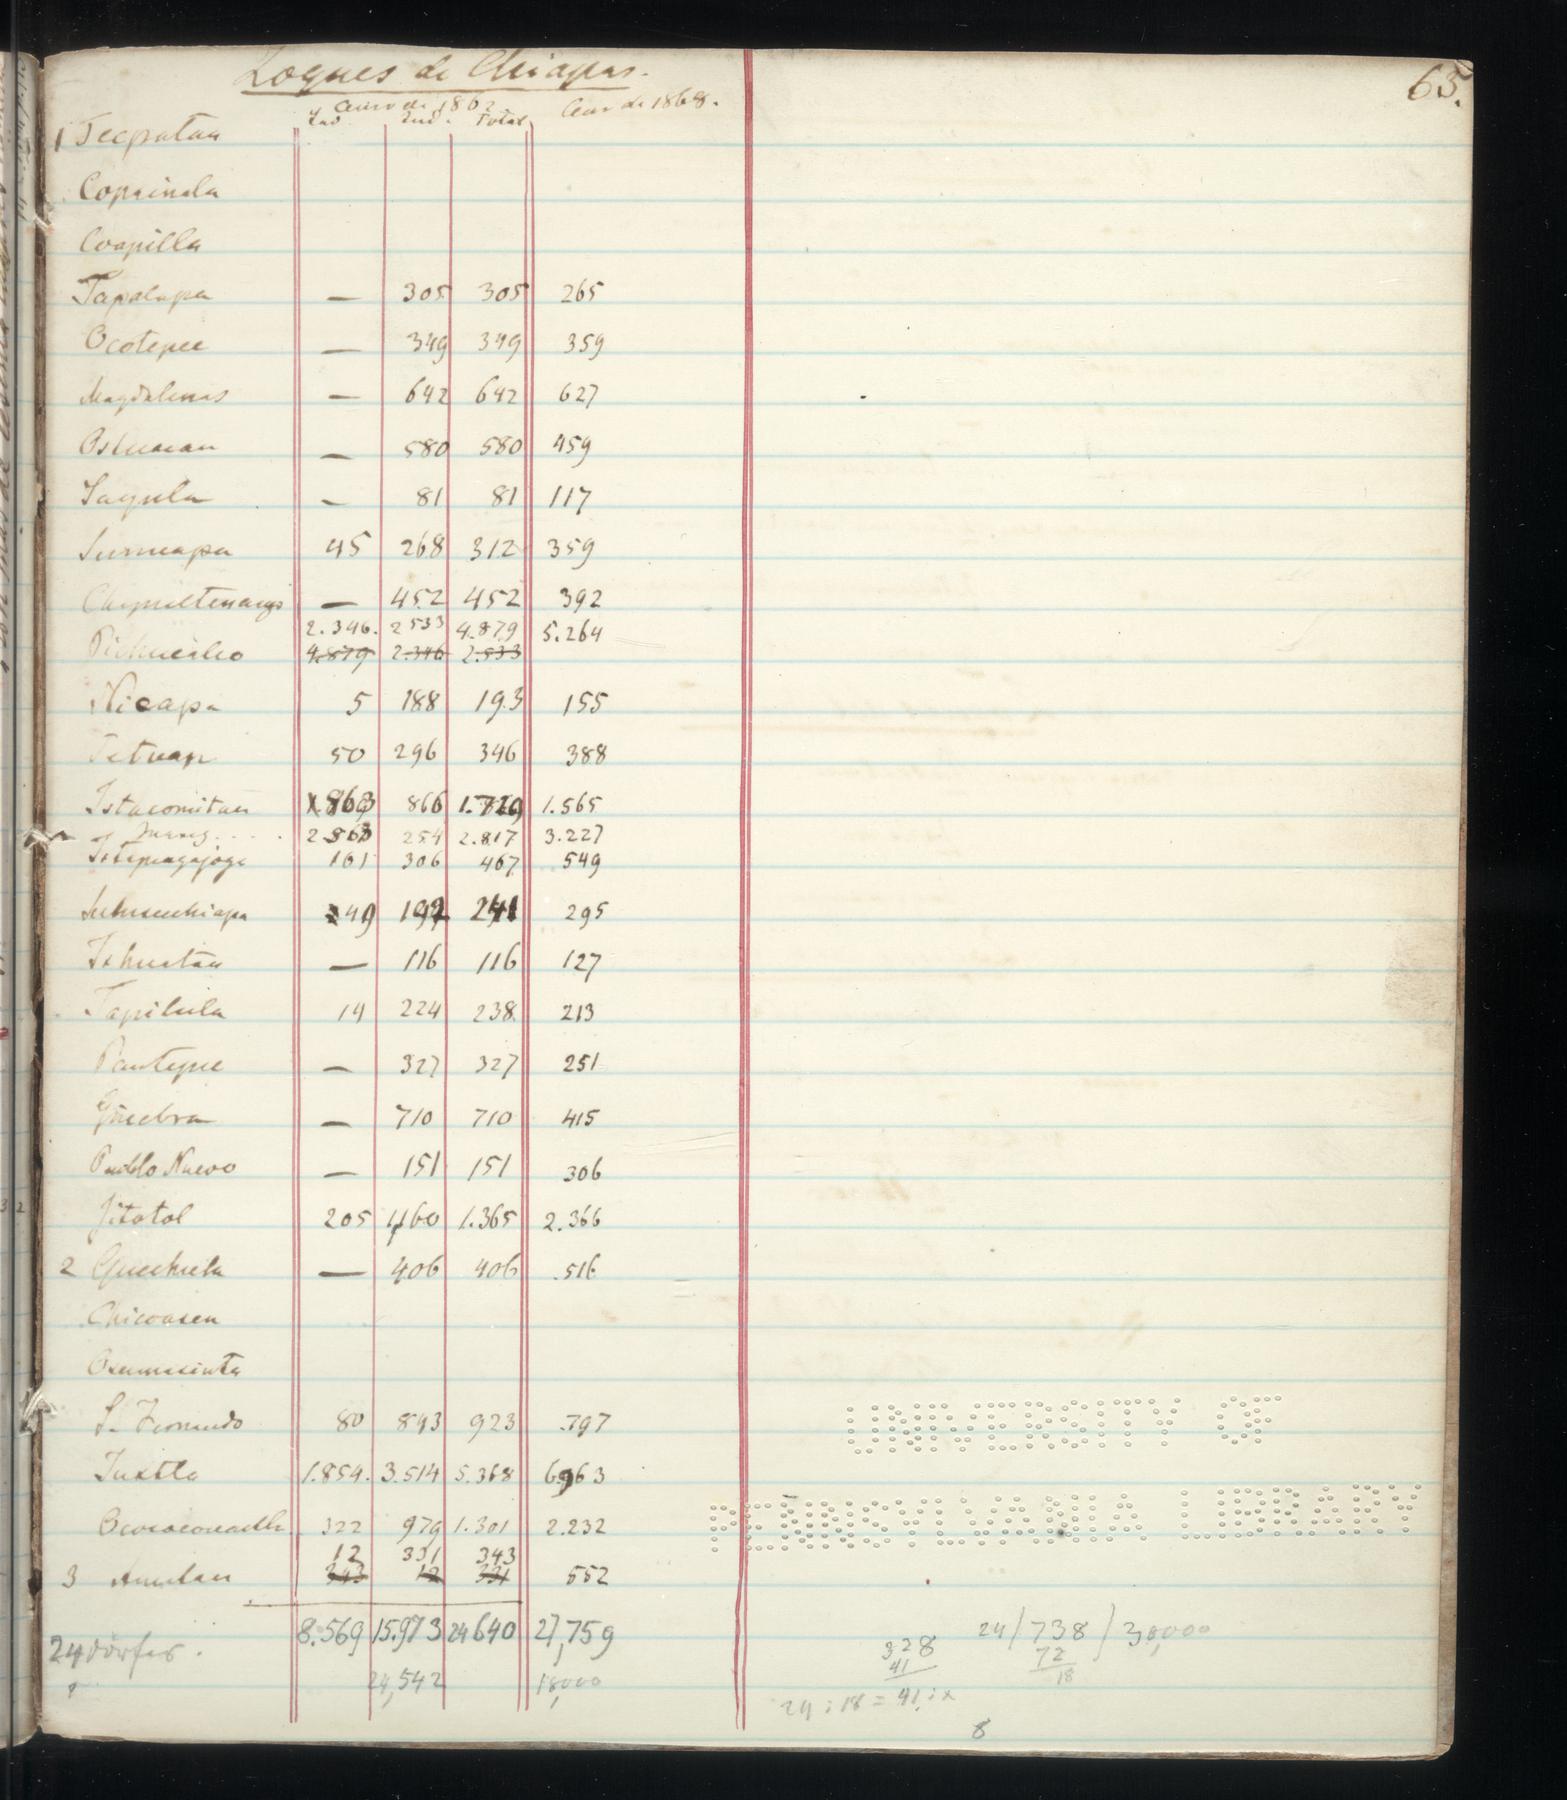 Zoques de Chiapas.
65.
Censo de 1862 Cens. de 1868.
Lad. Ind. Total
1 Tecpatan
Copainala
Coapilla
Tapalapa — 305 305 265
Ocotepec — 349 349 359
Magdalenas — 642 642 627
Ostuacan — 580 580 459
Sayula — 81 81 117
Sunuapa 45 268 312 359
Chapultenango — 452 452 392
2.346. 2533 4.879 5.264
Pichucalco 4.879 2.346 2.533
Nicapa 5 188 193 155
Tetuan 50 296 346 388
Istacomitan 863 866 1.729 1.565
Juarez.... 2563 254 2.817 3.227
Istapangajoga 161 306 467 549
Solusuchiapa 49 192 241 295
Ishuatan — 116 116 127
Tapilula 14 224 238 213
Pantepec — 327 327 251
Ginebra — 710 710 415
Pueblo Nuevo — 151 151 306
Jitotol 205 1,160 1.365 2.366
2 Quechula — 406 406 516
Chicoasen
Osumasinta
S. Fernando 80 843 923 797
Tuxtla 1.854. 3.514 5.368 6963
Ocosocouautla 322 979 1.301 2.232
12 331 343
3 Amatan 343 12 331 552
8.569 15.973 24640 27,759
24 dörfer.
24,542 18,000
24/738/30,000
72
18
328
41
24:18 = 41:x
8
UNIVERSITY OF
PENNSYLVANIA LIBRARY